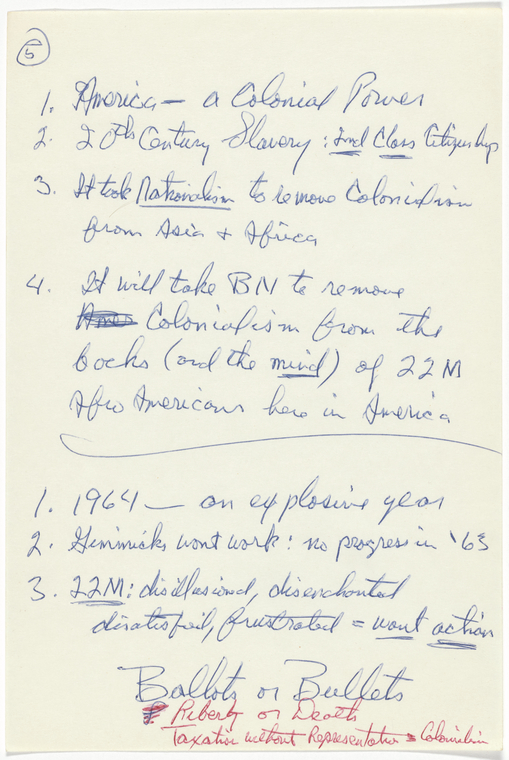 5
1. America — a Colonial Power
2. 20th Century Slavery: 2nd Class Citizenship
3. It took Nationalism to remove Colonialism
from Asia & Africa
4. It will take BN to remove
Colonialism from the
backs (and the mind) of 22M
Afro Americans here in America
1. 1964 — an explosive year
2. Gimmicks wont work: no progress in '63
3. 22M: disillusioned, disenchanted
disatisfied, frustrated = want action
Ballots or Bullets
Liberty or Death
Taxation without Representation = Colonialism